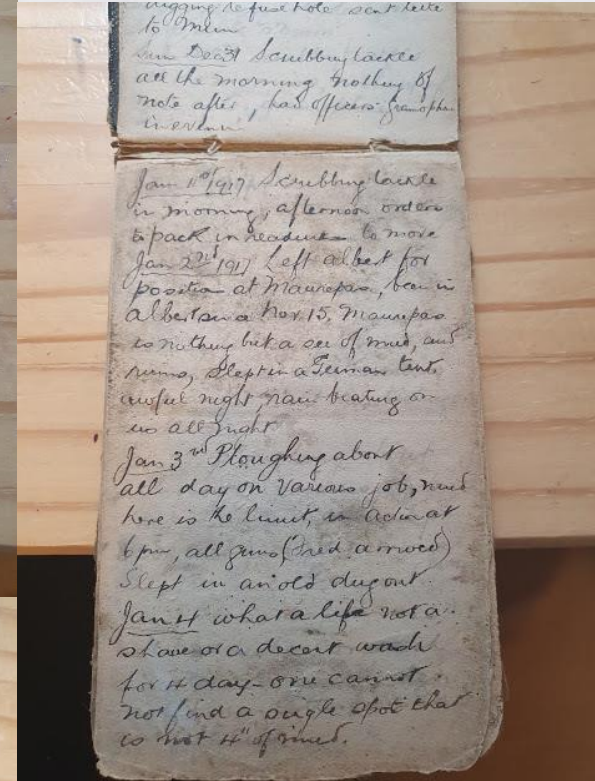 digging refuse hole sent letter
to Mum
Sun Dec 31 Scrubbing tackle
all the morning nothing of
note after, had officers gramophone
in evening
Jan 1st 1917 Scrubbing tackle
in morning, afternoon orders
to pack in readiness to move
Jan 2nd 1917 Left albert for
position at Maurepas, been in
albert since Nov 15. Maurepas
is nothing but a sea of mud, and
ruins, slept in a German tent
awful night, rain beating on
us all night
Jan 3rd Ploughing about
all day on various job, mud
here is the limit, in action at
6 pm, all guns (
Slept in an old dugout.
Jan 4 what a life not a
shave or a decent wash
for 4 day - one cannot
not find a single spot that
is not 4" of mud.